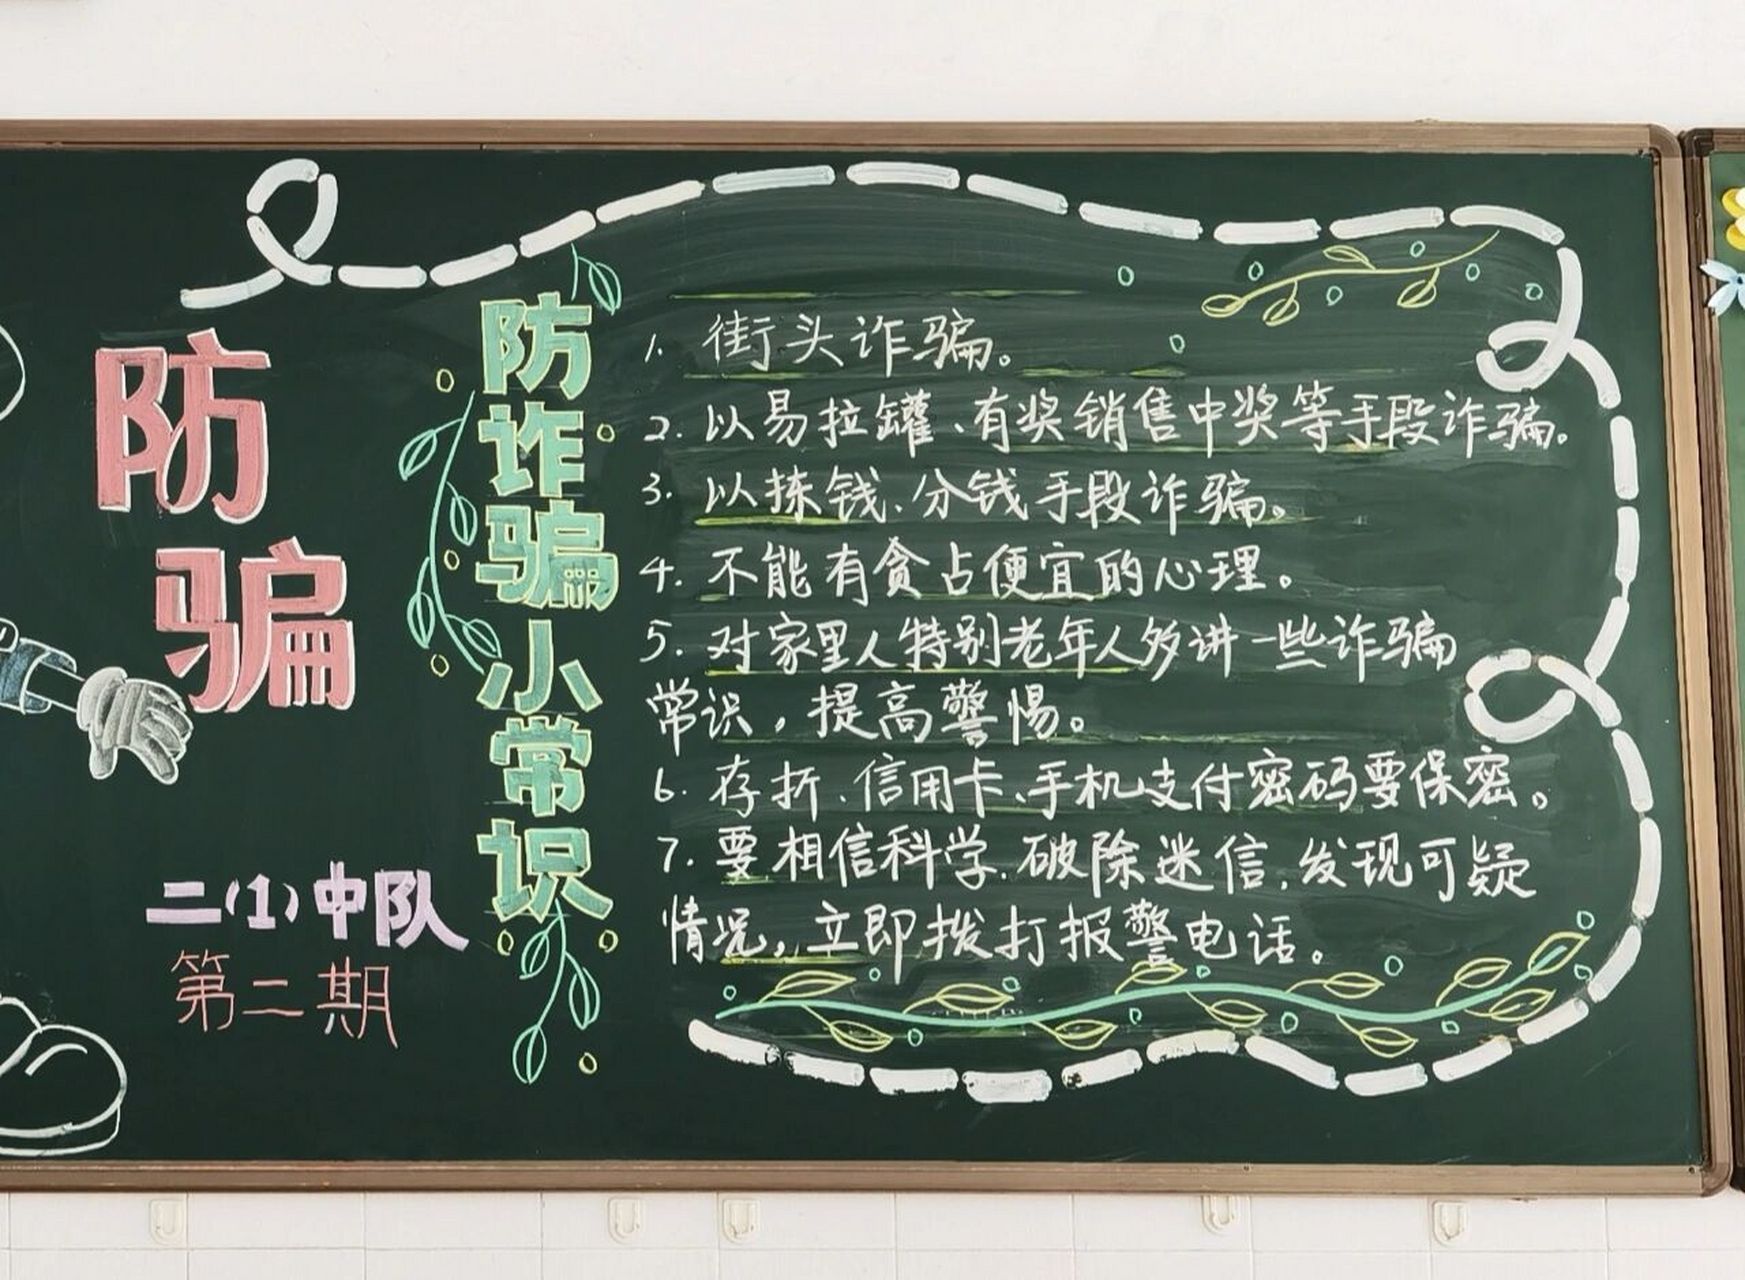 防
骗
二(1)中队
第二期
防诈骗小常识
1. 街头诈骗。
2. 以易拉罐、有奖销售中奖等手段诈骗。
3. 以拣钱、分钱手段诈骗。
4. 不能有贪占便宜的心理。
5. 对家里人特别老年人多讲一些诈骗
常识，提高警惕。
6. 存折、信用卡、手机支付密码要保密。
7. 要相信科学,破除迷信,发现可疑
情况，立即拨打报警电话。